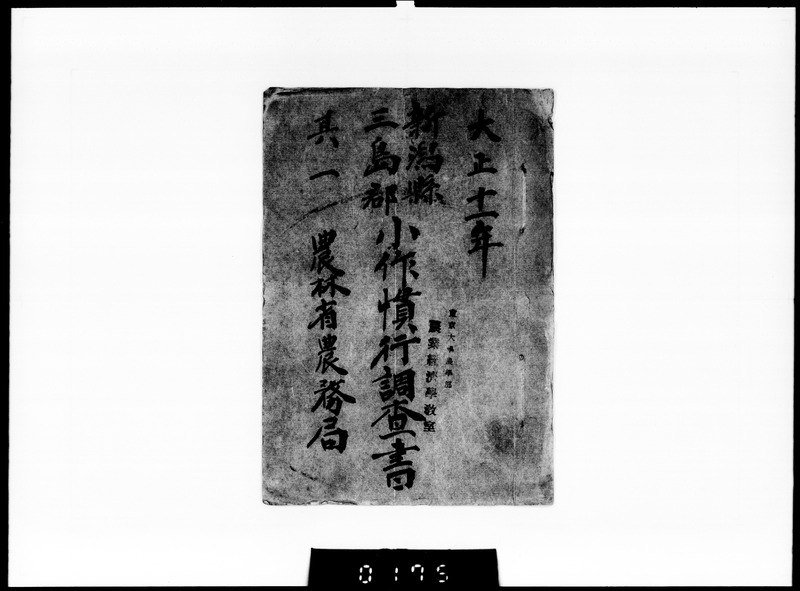 大正十一年
新潟縣
三島郡
小作慣行調査書
其一
農林省農務局
東京大學農學部
農業経濟學教室
0175